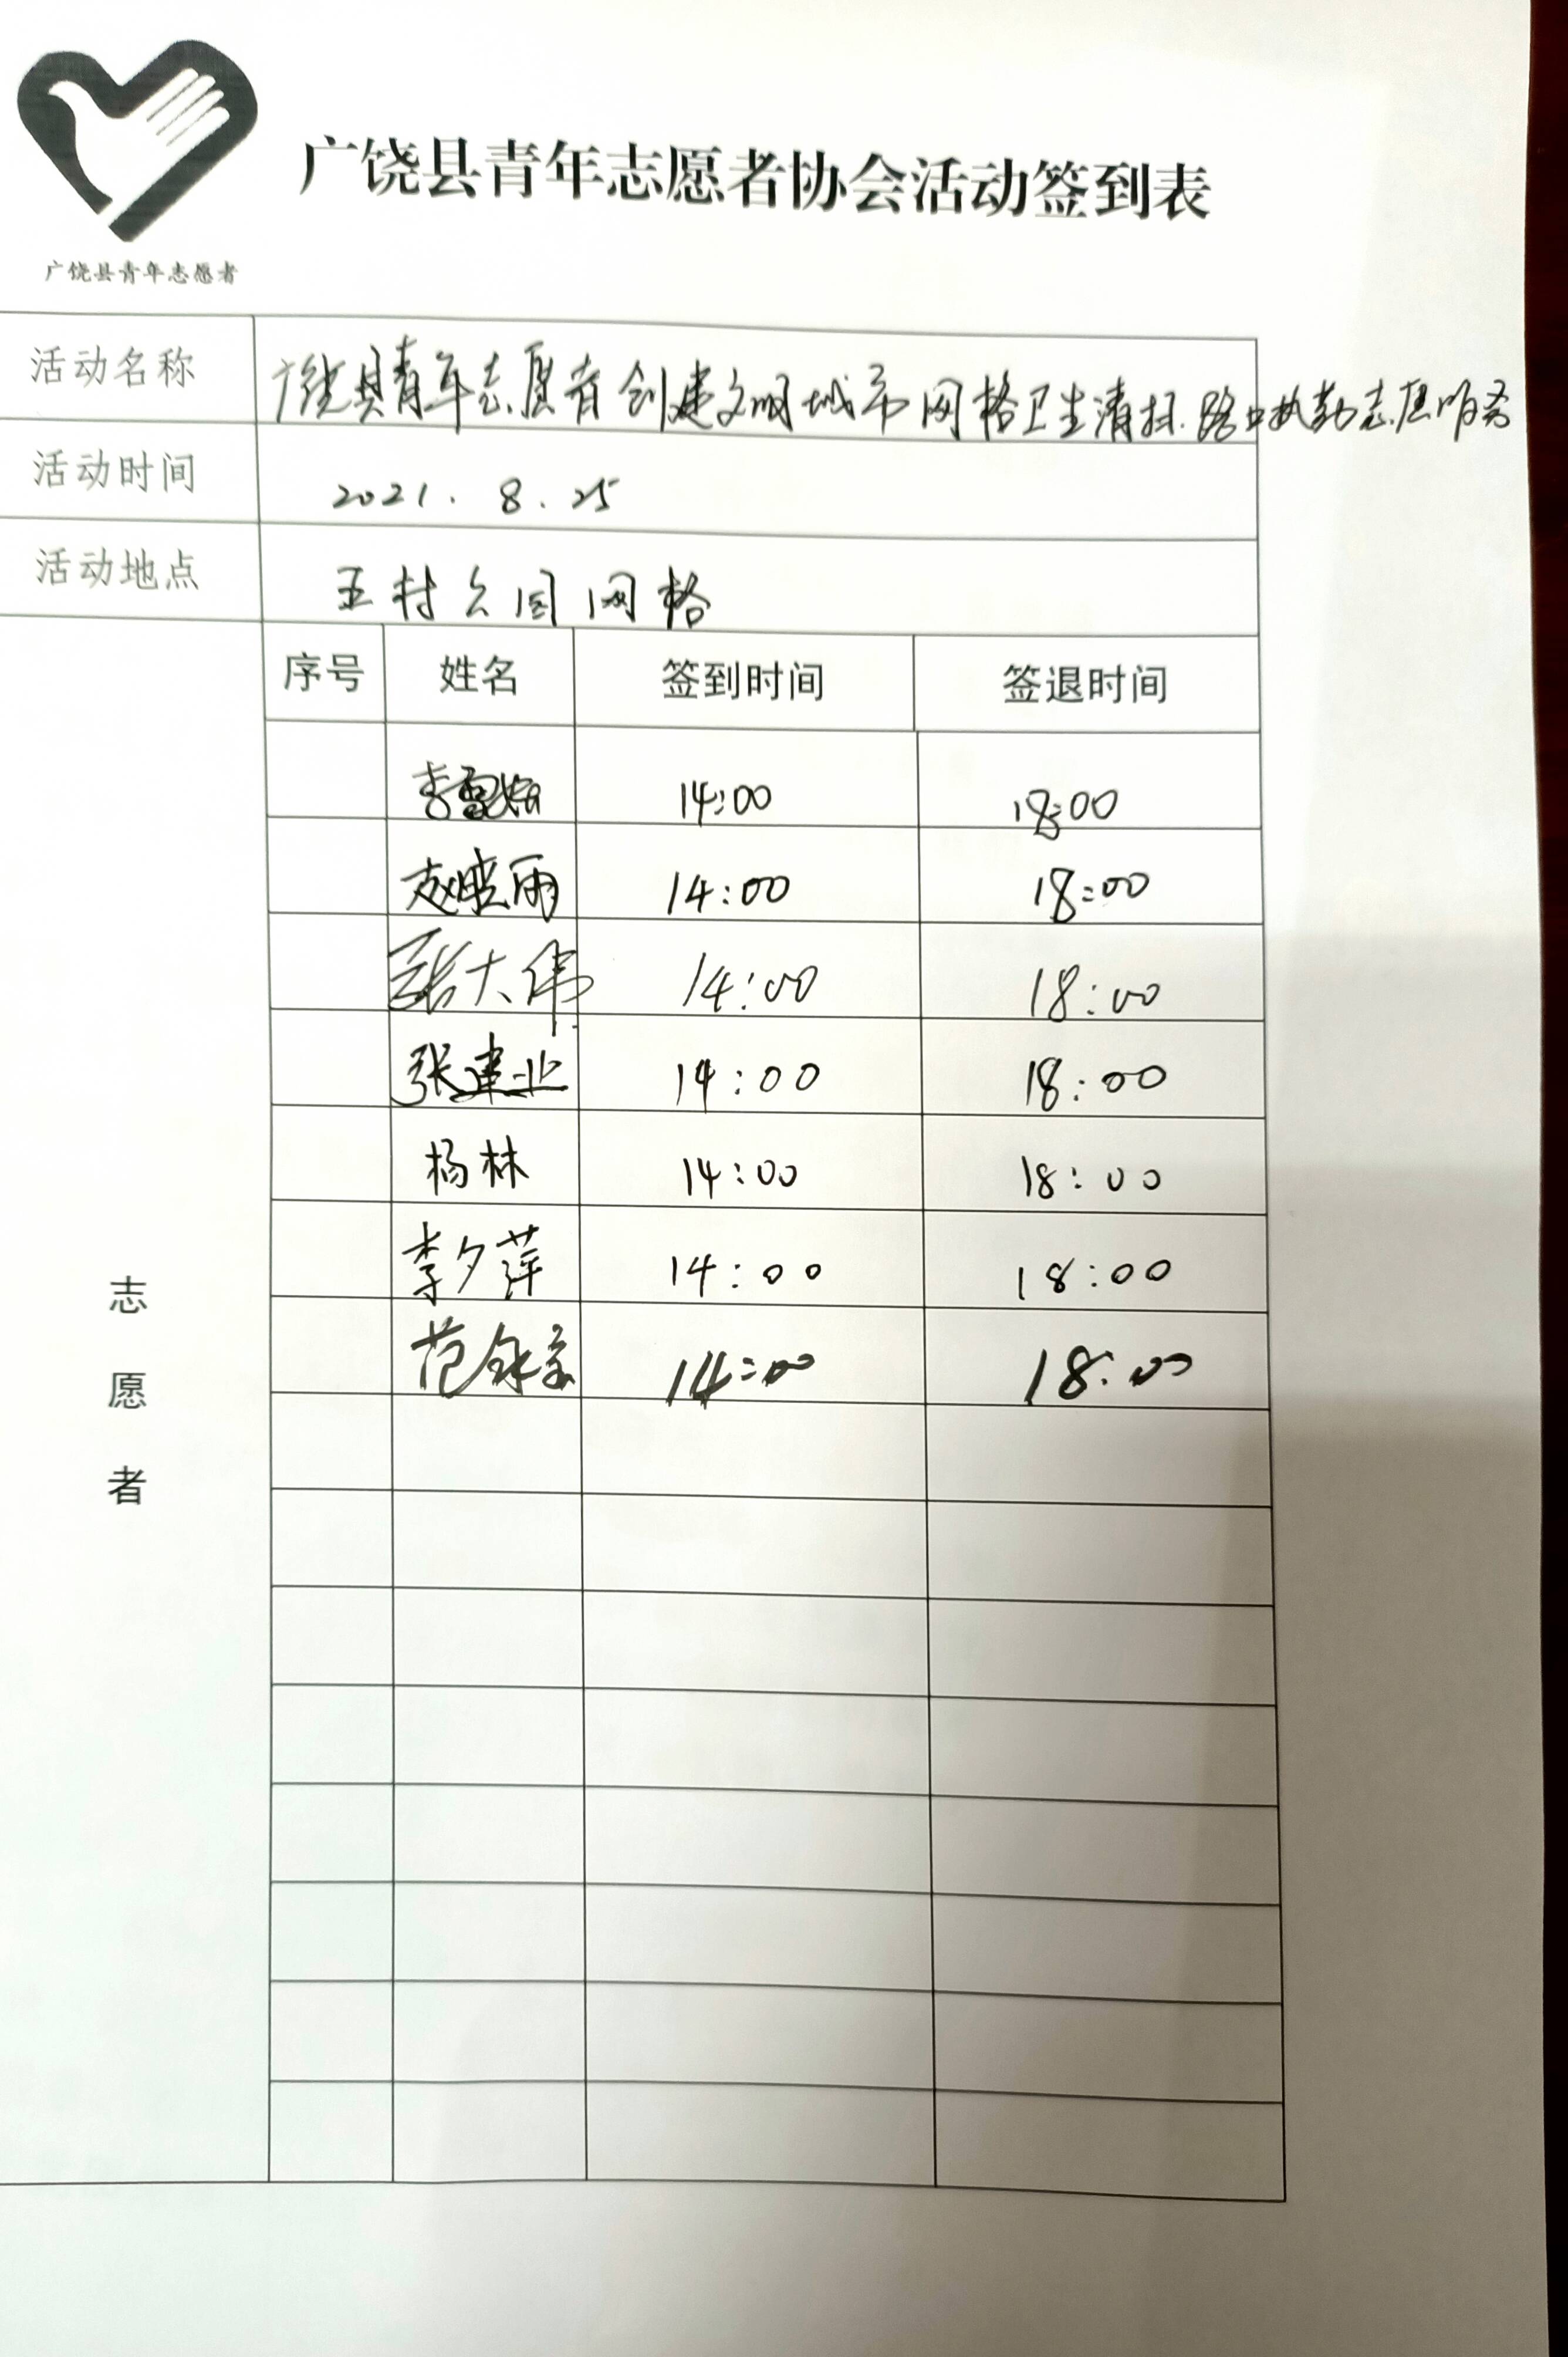 广饶县青年志愿者协会活动签到表
广饶县青年志愿者
活动名称 广饶县青年志愿者创建文明城市网格卫生清扫.路口执勤志愿服务
活动时间 2021.8.25
活动地点 王村公园网格
序号 姓名 签到时间 签退时间
李 14:00 18:00
赵 雨 14:00 18:00
张大伟 14:00 18:00
张建业 14:00 18:00
杨林 14:00 18:00
李夕萍 14:00 18:00
范 14:00 18:00
志
愿
者